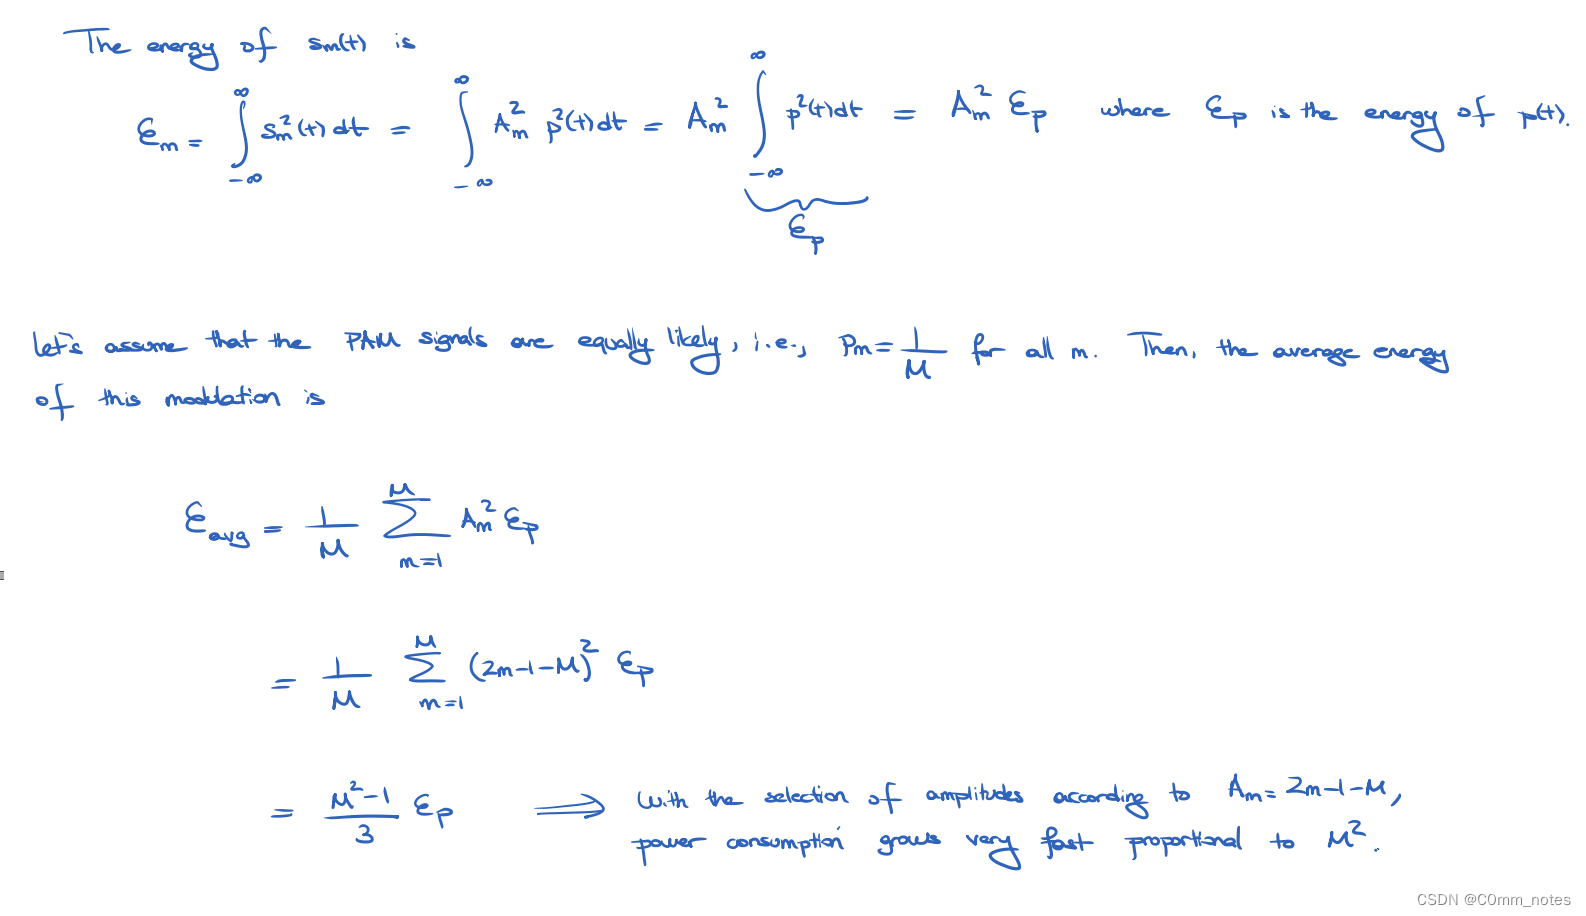 The energy of sm(t) is
ℰm = ∫_{-∞}^{∞} sm²(t) dt = ∫_{-∞}^{∞} Am² p²(t) dt = Am² ∫_{-∞}^{∞} p²(t) dt = Am² ℰp where ℰp is the energy of p(t).
ℰp
Let's assume that the PAM signals are equally likely, i.e., Pm = 1/M for all m. Then, the average energy
of this modulation is
ℰavg = 1/M ∑_{m=1}^{M} Am² ℰp
= 1/M ∑_{m=1}^{M} (2m-1-M)² ℰp
= (M²-1)/3 ℰp ⟹ With the selection of amplitudes according to Am = 2m-1-M,
power consumption grows very fast proportional to M².
CSDN @C0mm_notes